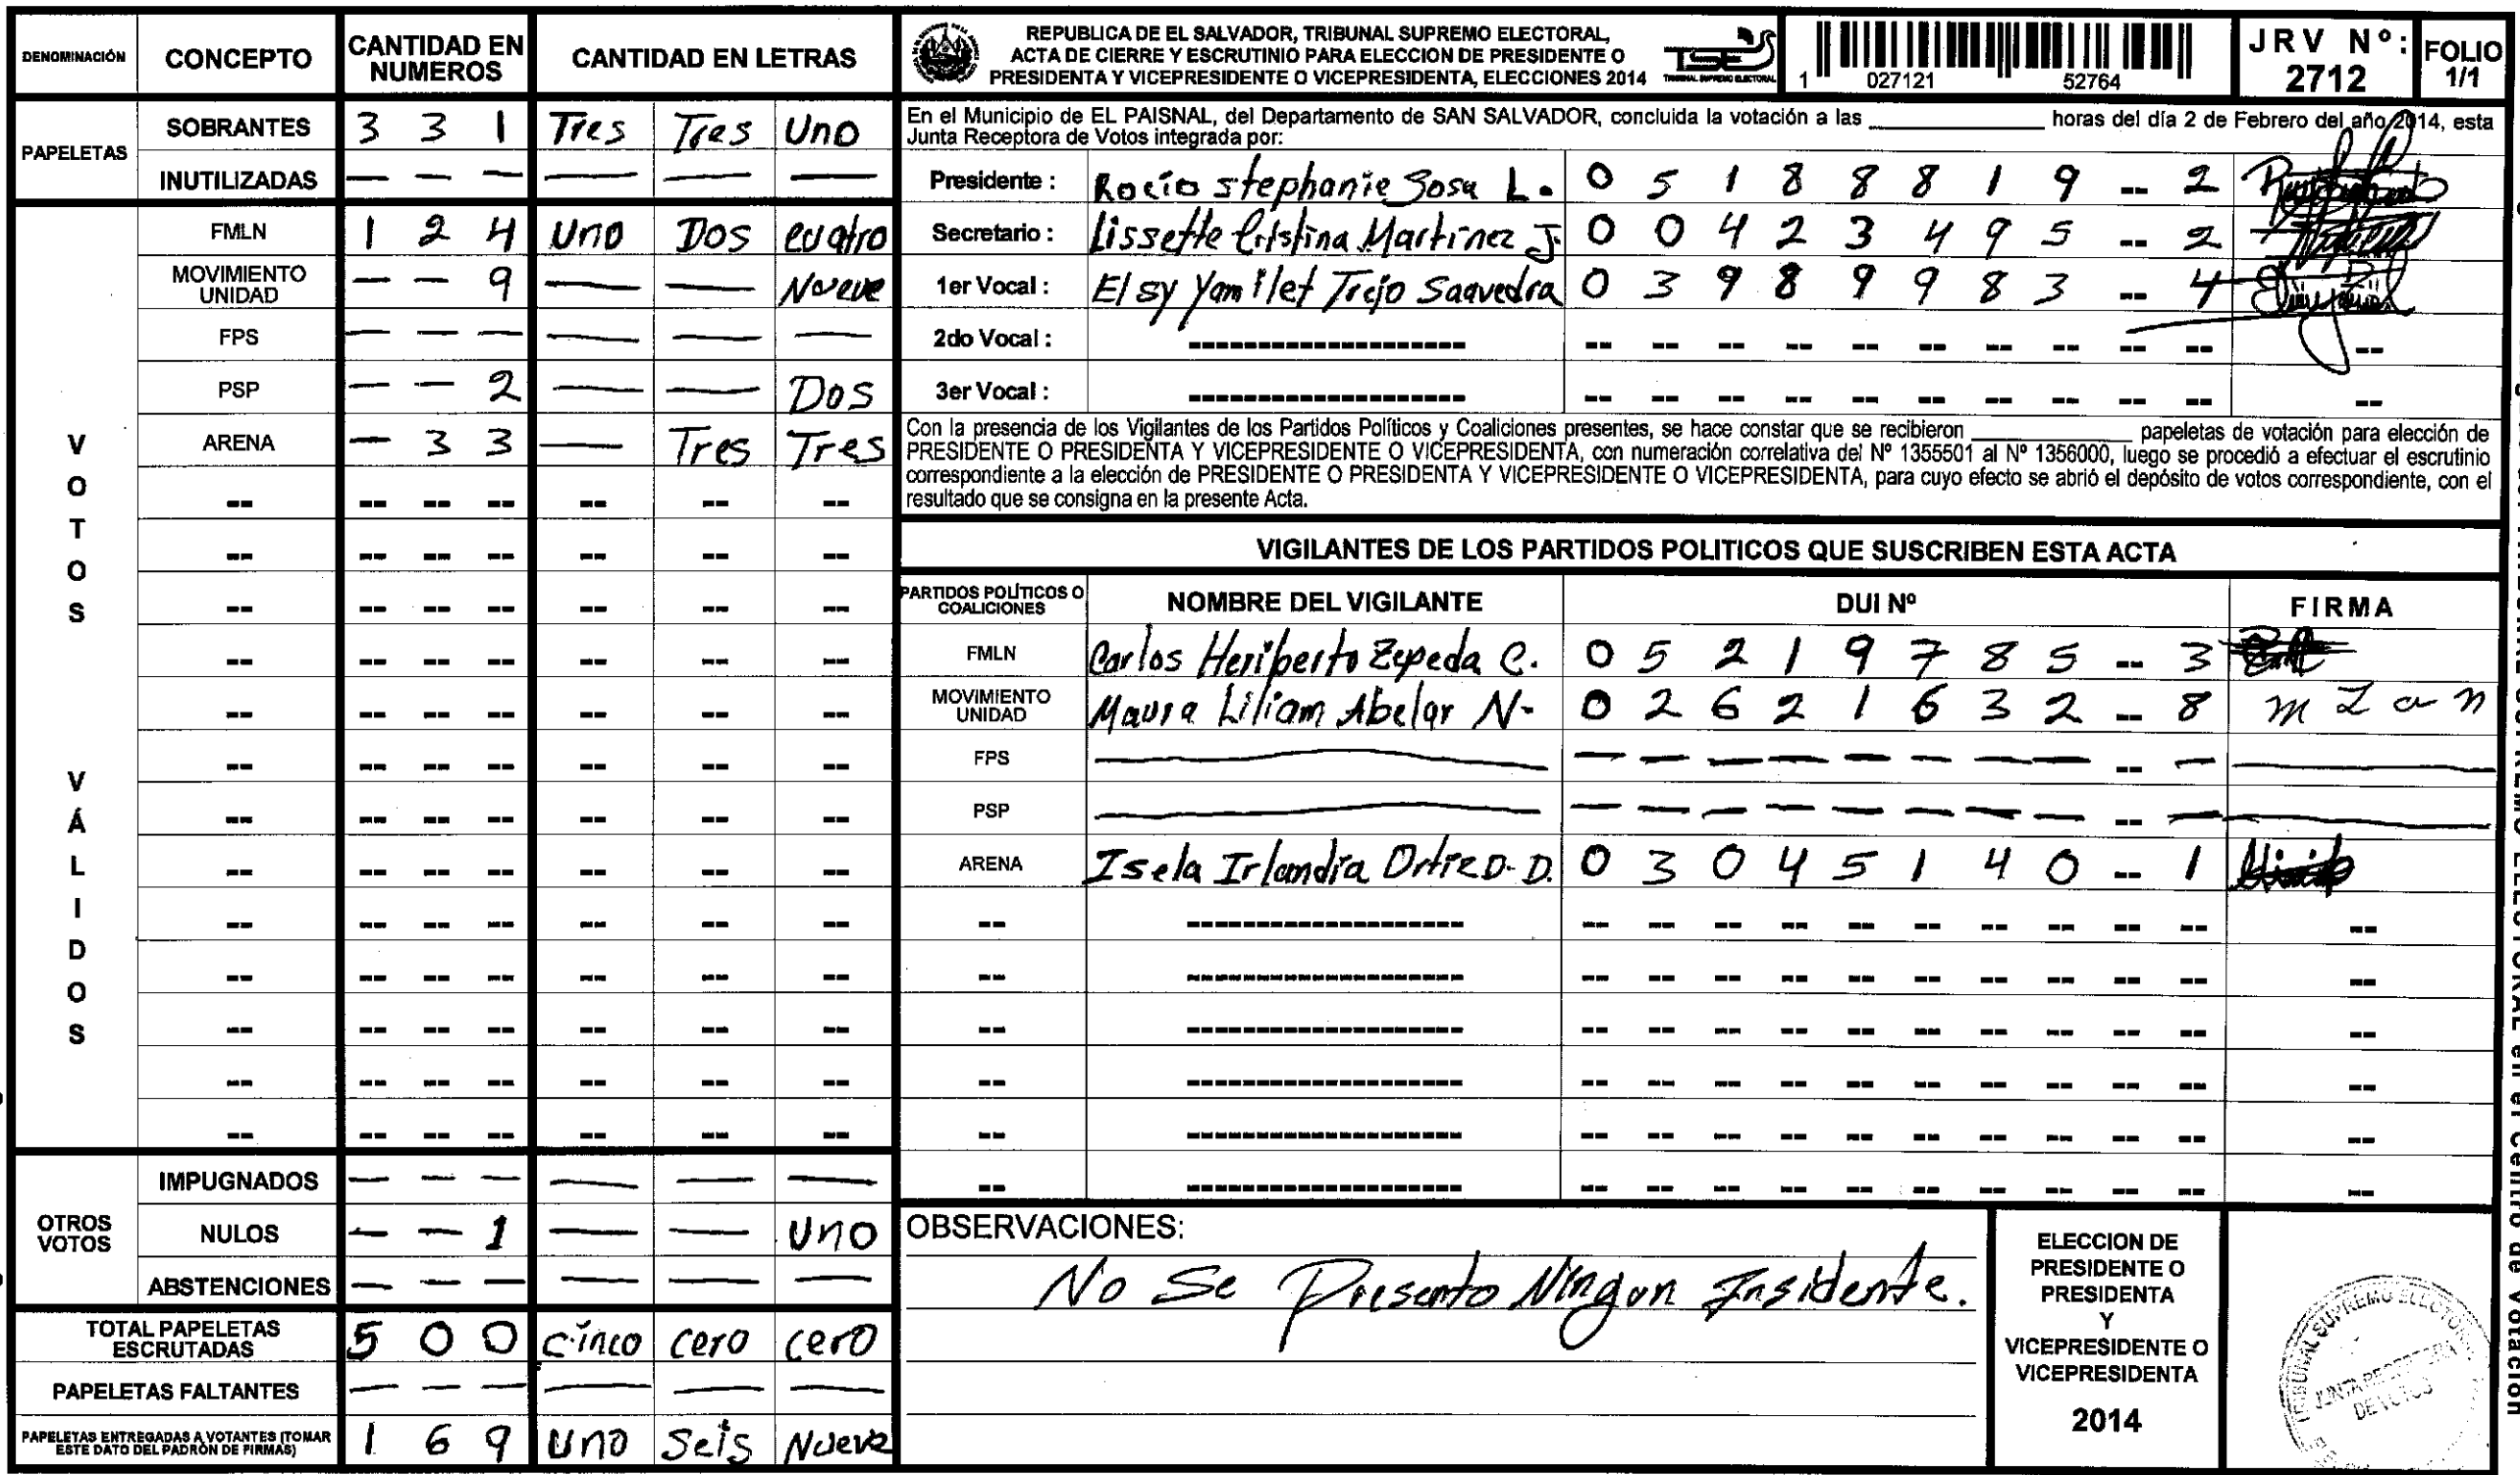 DENOMINACIÓN CONCEPTO CANTIDAD EN NUMEROS CANTIDAD EN LETRAS
PAPELETAS
SOBRANTES 3 3 1 Tres Tres Uno
INUTILIZADAS — — — — — —
VOTOS VÁLIDOS
FMLN 1 2 4 Uno Dos cuatro
MOVIMIENTO UNIDAD — — 9 — — Nueve
FPS — — — — — —
PSP — — 2 — — Dos
ARENA — 3 3 — Tres Tres
OTROS VOTOS
IMPUGNADOS — — — — — —
NULOS — — 1 — — Uno
ABSTENCIONES — — — — — —
TOTAL PAPELETAS ESCRUTADAS 5 0 0 cinco cero cero
PAPELETAS FALTANTES — — — — — —
PAPELETAS ENTREGADAS A VOTANTES (TOMAR ESTE DATO DEL PADRÓN DE FIRMAS) 1 6 9 uno Seis Nueve
REPUBLICA DE EL SALVADOR, TRIBUNAL SUPREMO ELECTORAL,
ACTA DE CIERRE Y ESCRUTINIO PARA ELECCION DE PRESIDENTE O
PRESIDENTA Y VICEPRESIDENTE O VICEPRESIDENTA, ELECCIONES 2014
TSE
TRIBUNAL SUPREMO ELECTORAL
1 027121 52764
JRV Nº: 2712
FOLIO 1/1
En el Municipio de EL PAISNAL, del Departamento de SAN SALVADOR, concluida la votación a las ____________ horas del día 2 de Febrero del año 2014, esta
Junta Receptora de Votos integrada por:
Presidente : Rocío Stephanie Sosa L. 0 5 1 8 8 8 1 9 -- 2
Secretario : Lissette Cristina Martinez J. 0 0 4 2 3 4 9 5 -- 2
1er Vocal : Elsy Yamilet Trejo Saavedra 0 3 9 8 9 9 8 3 -- 4
2do Vocal :
3er Vocal :
Con la presencia de los Vigilantes de los Partidos Políticos y Coaliciones presentes, se hace constar que se recibieron ____________ papeletas de votación para elección de
PRESIDENTE O PRESIDENTA Y VICEPRESIDENTE O VICEPRESIDENTA, con numeración correlativa del Nº 1355501 al Nº 1356000, luego se procedió a efectuar el escrutinio
correspondiente a la elección de PRESIDENTE O PRESIDENTA Y VICEPRESIDENTE O VICEPRESIDENTA, para cuyo efecto se abrió el depósito de votos correspondiente, con el
resultado que se consigna en la presente Acta.
VIGILANTES DE LOS PARTIDOS POLITICOS QUE SUSCRIBEN ESTA ACTA
PARTIDOS POLÍTICOS O COALICIONES NOMBRE DEL VIGILANTE DUI Nº FIRMA
FMLN Carlos Heriberto Zepeda C. 0 5 2 1 9 7 8 5 -- 3
MOVIMIENTO UNIDAD Maura Liliam Abelar N- 0 2 6 2 1 6 3 2 -- 8 m L a n
FPS
PSP
ARENA Isela Irlandia Ortiz D. D. 0 3 0 4 5 1 4 0 -- 1
OBSERVACIONES:
No Se Presento Ningun Insidente.
ELECCION DE
PRESIDENTE O
PRESIDENTA
Y
VICEPRESIDENTE O
VICEPRESIDENTA
2014
TRIBUNAL SUPREMO ELECTORAL
JUNTA RECEPTORA
DE VOTOS
TRIBUNAL SUPREMO ELECTORAL en el Centro de Votación